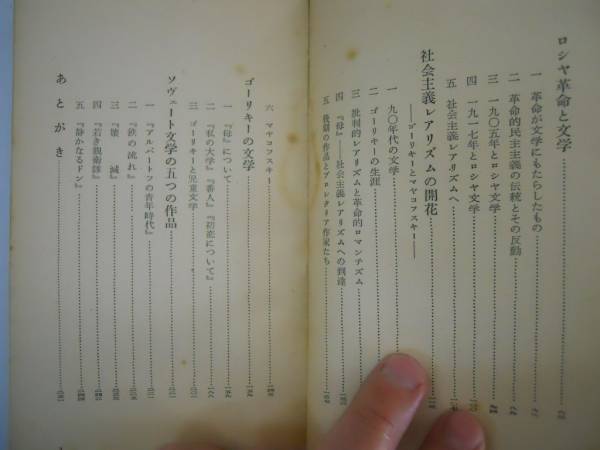 ロシヤ革命と文学
一 革命が文学にもたらしたもの
二 革命的民主主義の伝統とその反動
三 一九〇五年とロシヤ文学
四 一九一七年とロシヤ文学
五 社会主義レアリズムへ
社会主義レアリズムの開花
——ゴーリキーとマヤコフスキー——
一 九〇年代の文学
二 ゴーリキーの生涯
三 批判的レアリズムと革命的ロマンチズム
四 『母』——社会主義レアリズムへの到達
五 後期の作品とプロレタリア作家たち
六 マヤコフスキー
ゴーリキーの文学
一 『母』について
二 『私の大学』『番人』『初恋について』
三 ゴーリキーと児童文学
ソヴェート文学の五つの作品
一 『アルバートフの青年時代』
二 『鉄の流れ』
三 『壊滅』
四 『若き親衛隊』
五 『静かなるドン』
あとがき